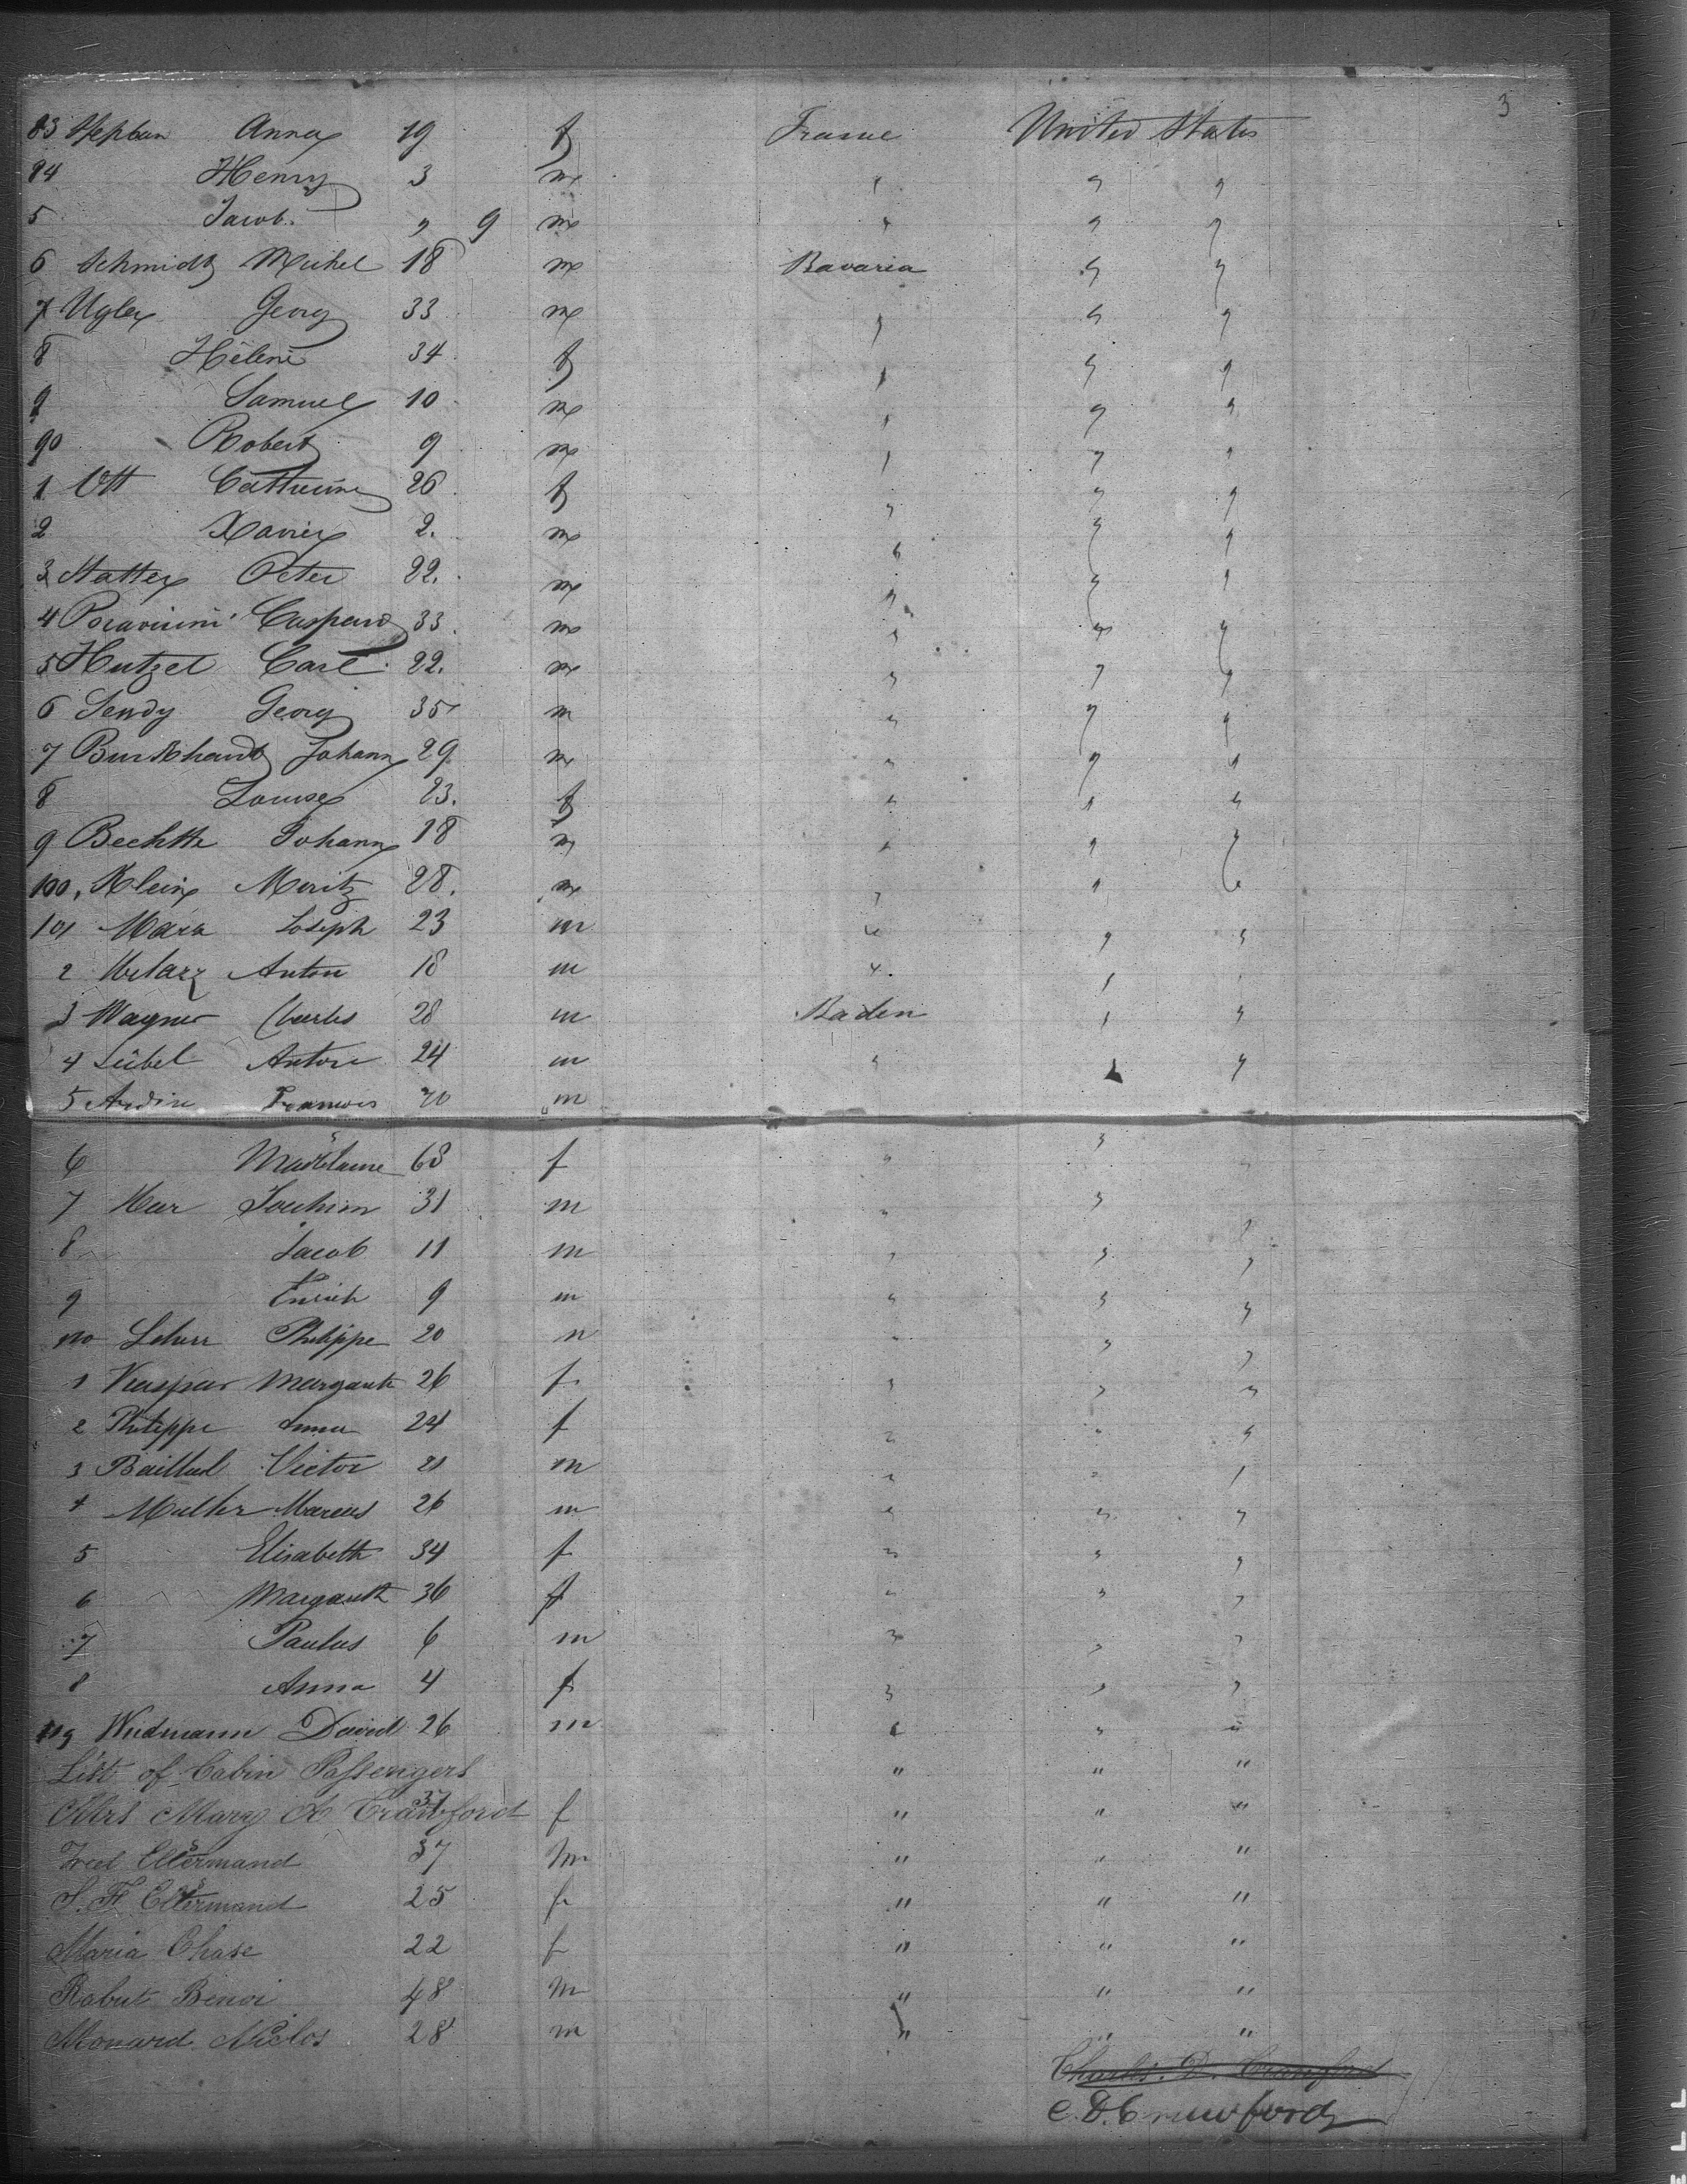 3
83 Stephan Anna 19 f France United States
84 Henry 3 m " " "
5 Jacob " 9 m " " "
6 Schmidt Michel 18 m Bavaria " "
7 Georg 33 m " " "
8 Hélène 34 f " " "
9 Samuel 10 m " " "
90 Robert 9 m " " "
1 Ott Catherine 26 f " " "
2 Xavier 2. m " " "
3 Peter 22. m " " "
4 Caspard 33. m " " "
5 Hutzel Carl 22. m " " "
6 Georg 35 m " " "
7 Burkhardt Johann 29 m " " "
8 Louise 23. f " " "
9 Johann 18 m " " "
100, Klein Moritz 28. m " " "
101 Marx Joseph 23 m " " "
2 Anton 18 m " "
3 Wagner Charles 28 m Baden " "
4 Leibel Anton 24 m " " "
5 Francois 70 m
6 Madelaine 68 f " " "
7 Joachim 31 m " " "
8 Jacob 11 m " " "
9 9 m " " "
110 Philippe 20 m " " "
1 Kaspar Margareth 26 f " " "
2 Philippe Anna 24 f " " "
3 Victor 21 m " " "
4 Muller Marcus 26 m " " "
5 Elisabeth 34 f " " "
6 Margareth 36 f " " "
7 Paulus 6 m " " "
8 Anna 4 f " " "
119 Wiedmann David 26 m " " "
List of Cabin Passengers " " "
Mrs Mary A Crawford 37 f " " "
37 m " " "
25 f " " "
Maria Chase 22 f " " "
Benoi 48 m " " "
Monard 28 m " " "
Charles. D. Crawford
C. D. Crawford